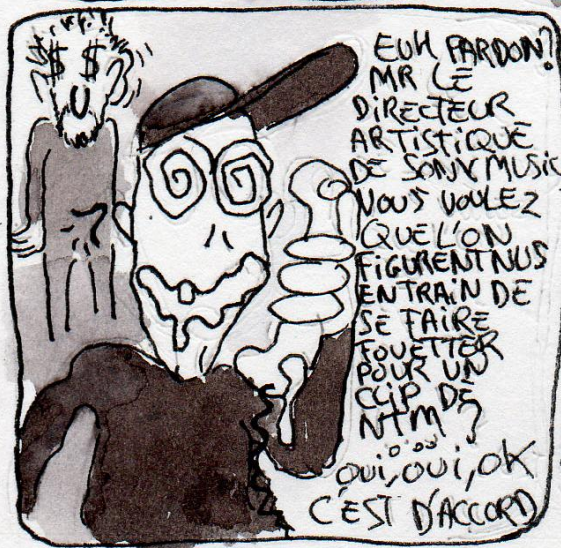 EUH PARDON?
MR LE
DIRECTEUR
ARTISTIQUE
DE SONY MUSIC
VOUS VOULEZ
QUE L'ON
FIGURENT NUS
ENTRAIN DE
SE FAIRE
FOUETTER
POUR UN
CLIP DE
NTM ?
OUI, OUI, OK
C'EST D'ACCORD
$ $